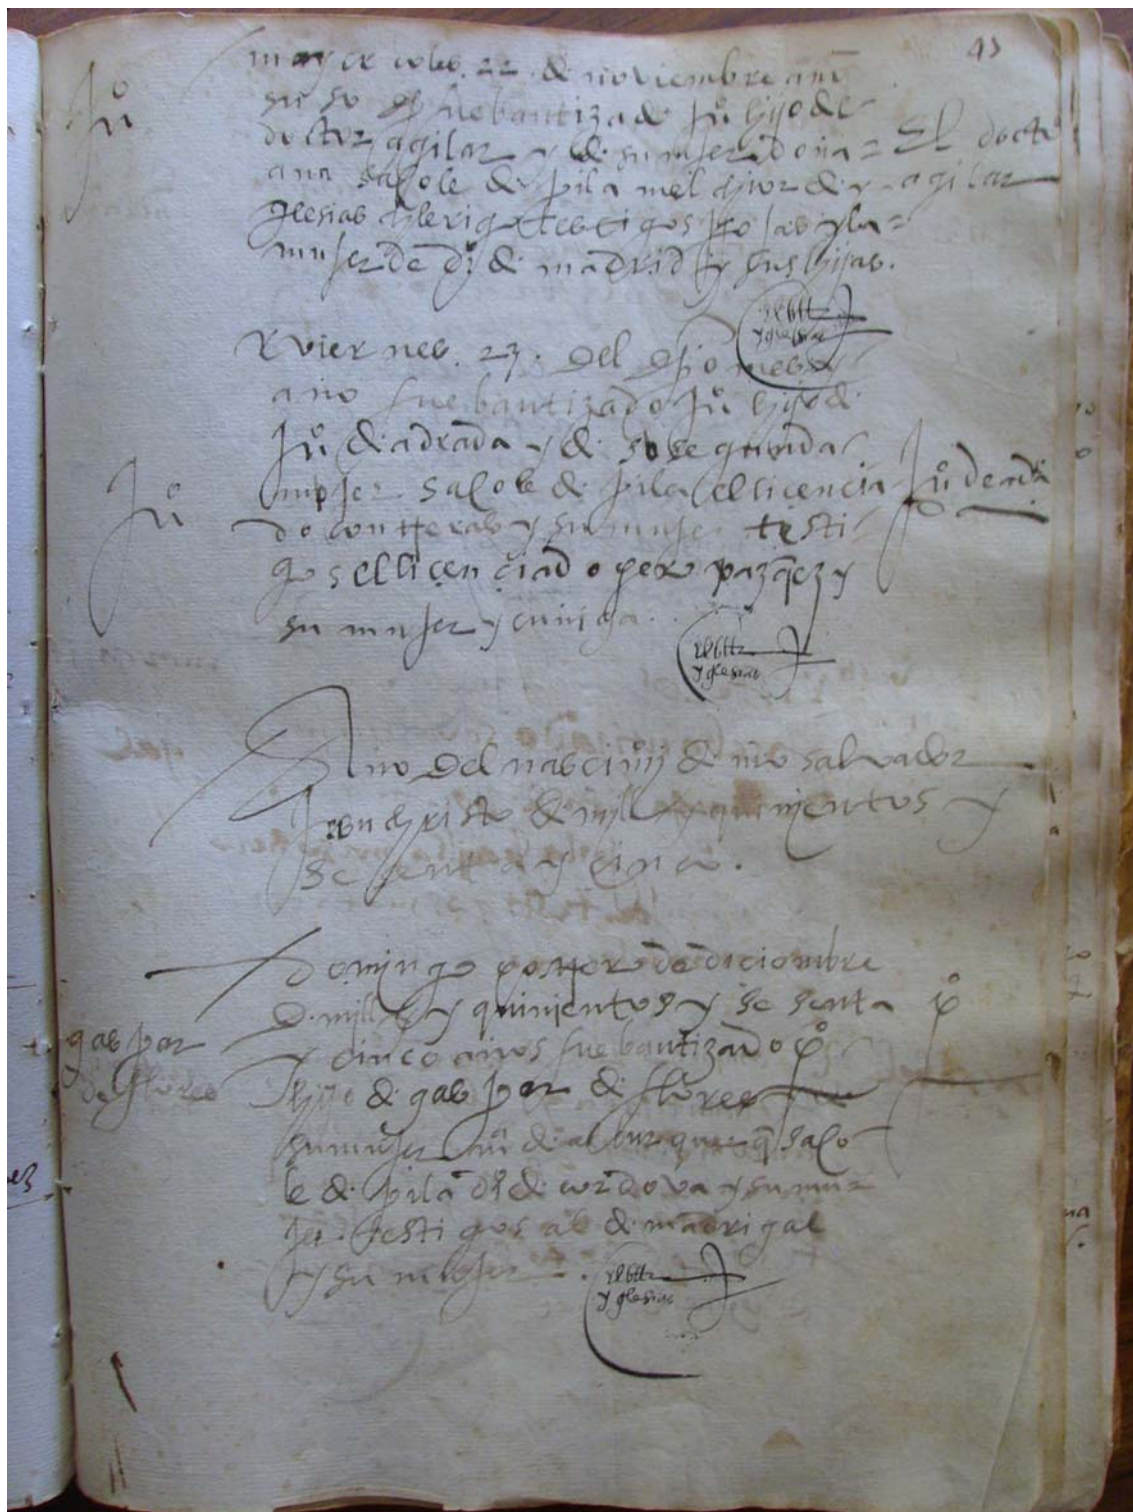 45
Juº
miercoles. 22. de noviembre año
suso dho fue bautizado Juº hijo de
doctor agilar y de su mujer doña =
El doctor
ana sacole de pila melchior de y
agilar
glesias clerigo testigos
mujer de dº de madrid y sus hijas.
el bllr
yglesias
viernes. 23. del dho mes y
año fue bautizado Juº hijo de
Juº de adrada y de su segunda
Juº
mujer sacole de pila el licencia
Juº de adrada
do contreras y su mujer testi
gos el licenciado pero vazquez y
su mujer y
el bllr
yglesias
Año del nascimiº de nrõ salvador
Jesuchristo de mjll y quinientos y
sesenta y cinco.
domingo postrero de diciembre
de mjll y quinientos y sesenta
pº
gaspar
y cinco años fue bautizado pº
de flores
hijo de gaspar de flores
su mujer mª de alburquerq saco
le de pila dº de cordova y su mu
jer. testigos aº de madrigal
y su mujer.
el bllr
yglesias